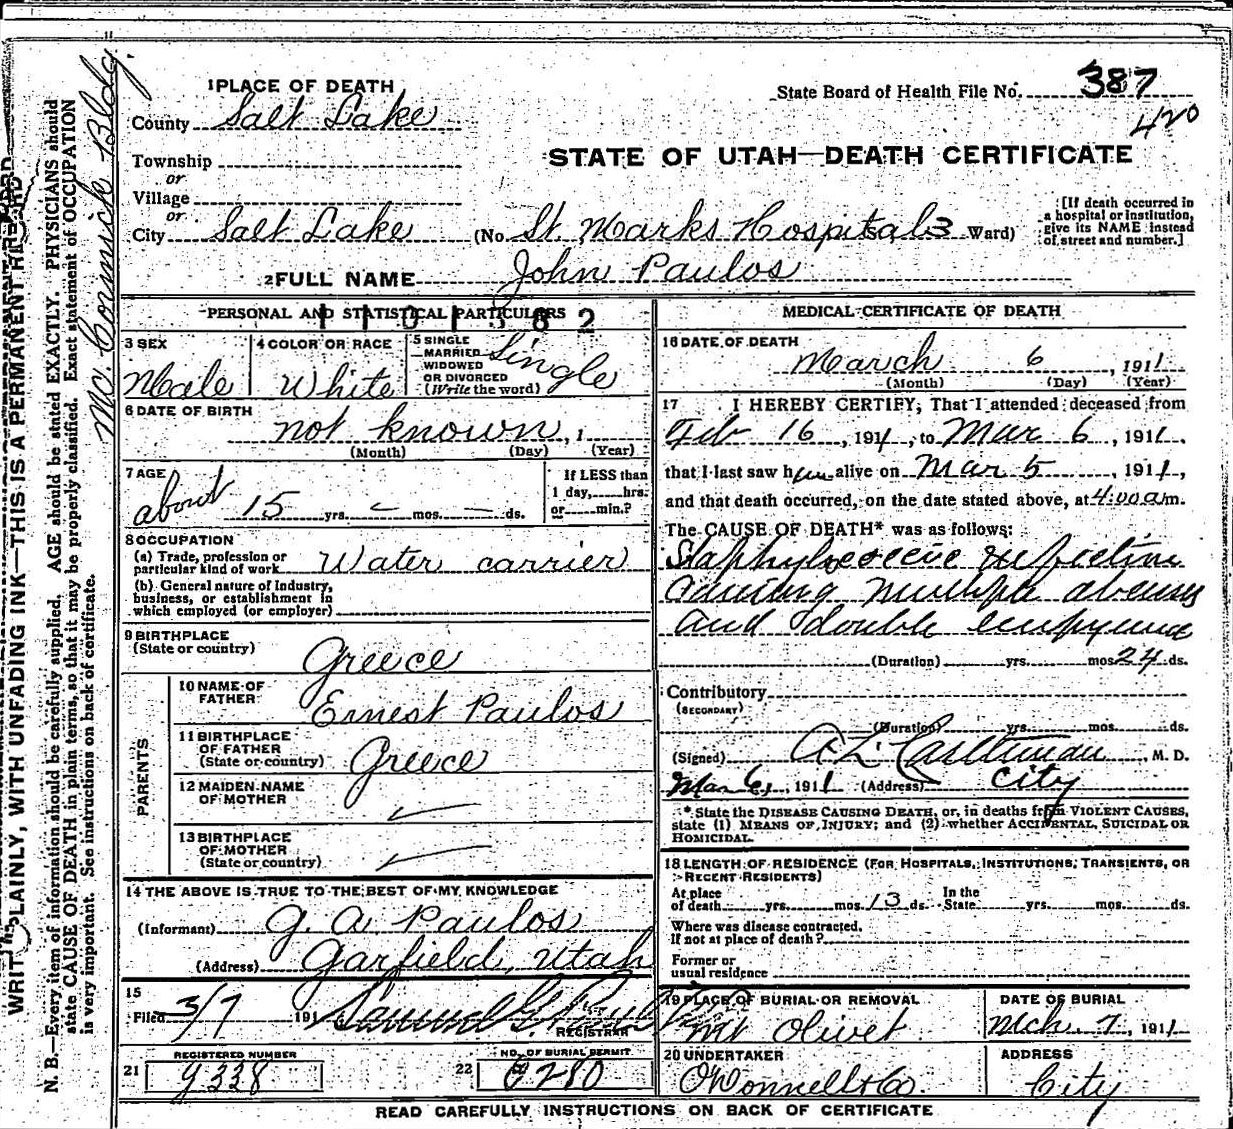 1 PLACE OF DEATH
County Salt Lake
Township
or
Village
or
City Salt Lake (No. St. Marks Hospital 3 Ward)
State Board of Health File No. 387
420
STATE OF UTAH—DEATH CERTIFICATE
[If death occurred in
a hospital or institution,
give its NAME instead
of street and number.]
2 FULL NAME John Paulos
PERSONAL AND STATISTICAL PARTICULARS
3 SEX
Male
4 COLOR OR RACE
White
5 SINGLE
MARRIED
WIDOWED
OR DIVORCED
(Write the word)
Single
6 DATE OF BIRTH
not known, 1
(Month) (Day) (Year)
7 AGE
about 15 yrs. – mos. – ds.
If LESS than
1 day, hrs.
or min.?
8 OCCUPATION
(a) Trade, profession or
particular kind of work Water carrier
(b) General nature of Industry,
business, or establishment in
which employed (or employer)
9 BIRTHPLACE
(State or country)
Greece
PARENTS
10 NAME OF
FATHER
Ernest Paulos
11 BIRTHPLACE
OF FATHER
(State or country) Greece
12 MAIDEN NAME
OF MOTHER
13 BIRTHPLACE
OF MOTHER
(State or country)
14 THE ABOVE IS TRUE TO THE BEST OF MY KNOWLEDGE
(Informant) G. A. Paulos
(Address) Garfield, Utah
15
Filed 3/7 191 Samuel G.
REGISTRAR
REGISTERED NUMBER
21 9338
NO. OF BURIAL PERMIT
22 6280
MEDICAL CERTIFICATE OF DEATH
16 DATE OF DEATH
March 6, 1911
(Month) (Day) (Year)
17 I HEREBY CERTIFY, That I attended deceased from
Feb 16, 1911, to Mar 6, 1911,
that I last saw him alive on Mar 5, 1911,
and that death occurred, on the date stated above, at 4:00 a m.
The CAUSE OF DEATH* was as follows:
Staphylococcic infection
causing multiple abscesses
and double empyema
(Duration) yrs. mos. 24 ds.
Contributory
(SECONDARY)
(Duration) yrs. mos. ds.
(Signed) A. L. M. D.
Mar 6, 1911 (Address) City
*State the DISEASE CAUSING DEATH, or, in deaths from VIOLENT CAUSES,
state (1) MEANS OF INJURY; and (2) whether ACCIDENTAL, SUICIDAL OR
HOMICIDAL.
18 LENGTH OF RESIDENCE (FOR HOSPITALS, INSTITUTIONS, TRANSIENTS, OR
RECENT RESIDENTS)
At place
of death yrs. mos. 13 ds.
In the
State yrs. mos. ds.
Where was disease contracted,
If not at place of death?
Former or
usual residence
19 PLACE OF BURIAL OR REMOVAL
Mt Olivet
DATE OF BURIAL
Mch 7, 1911
20 UNDERTAKER
O'Donnell & Co.
ADDRESS
City
READ CAREFULLY INSTRUCTIONS ON BACK OF CERTIFICATE
WRITE PLAINLY, WITH UNFADING INK—THIS IS A PERMANENT RECORD
N. B.—Every item of information should be carefully supplied. AGE should be stated EXACTLY. PHYSICIANS should
state CAUSE OF DEATH in plain terms, so that it may be properly classified. Exact statement of OCCUPATION
is very important. See instructions on back of certificate.
Mc Cornick Bldg.